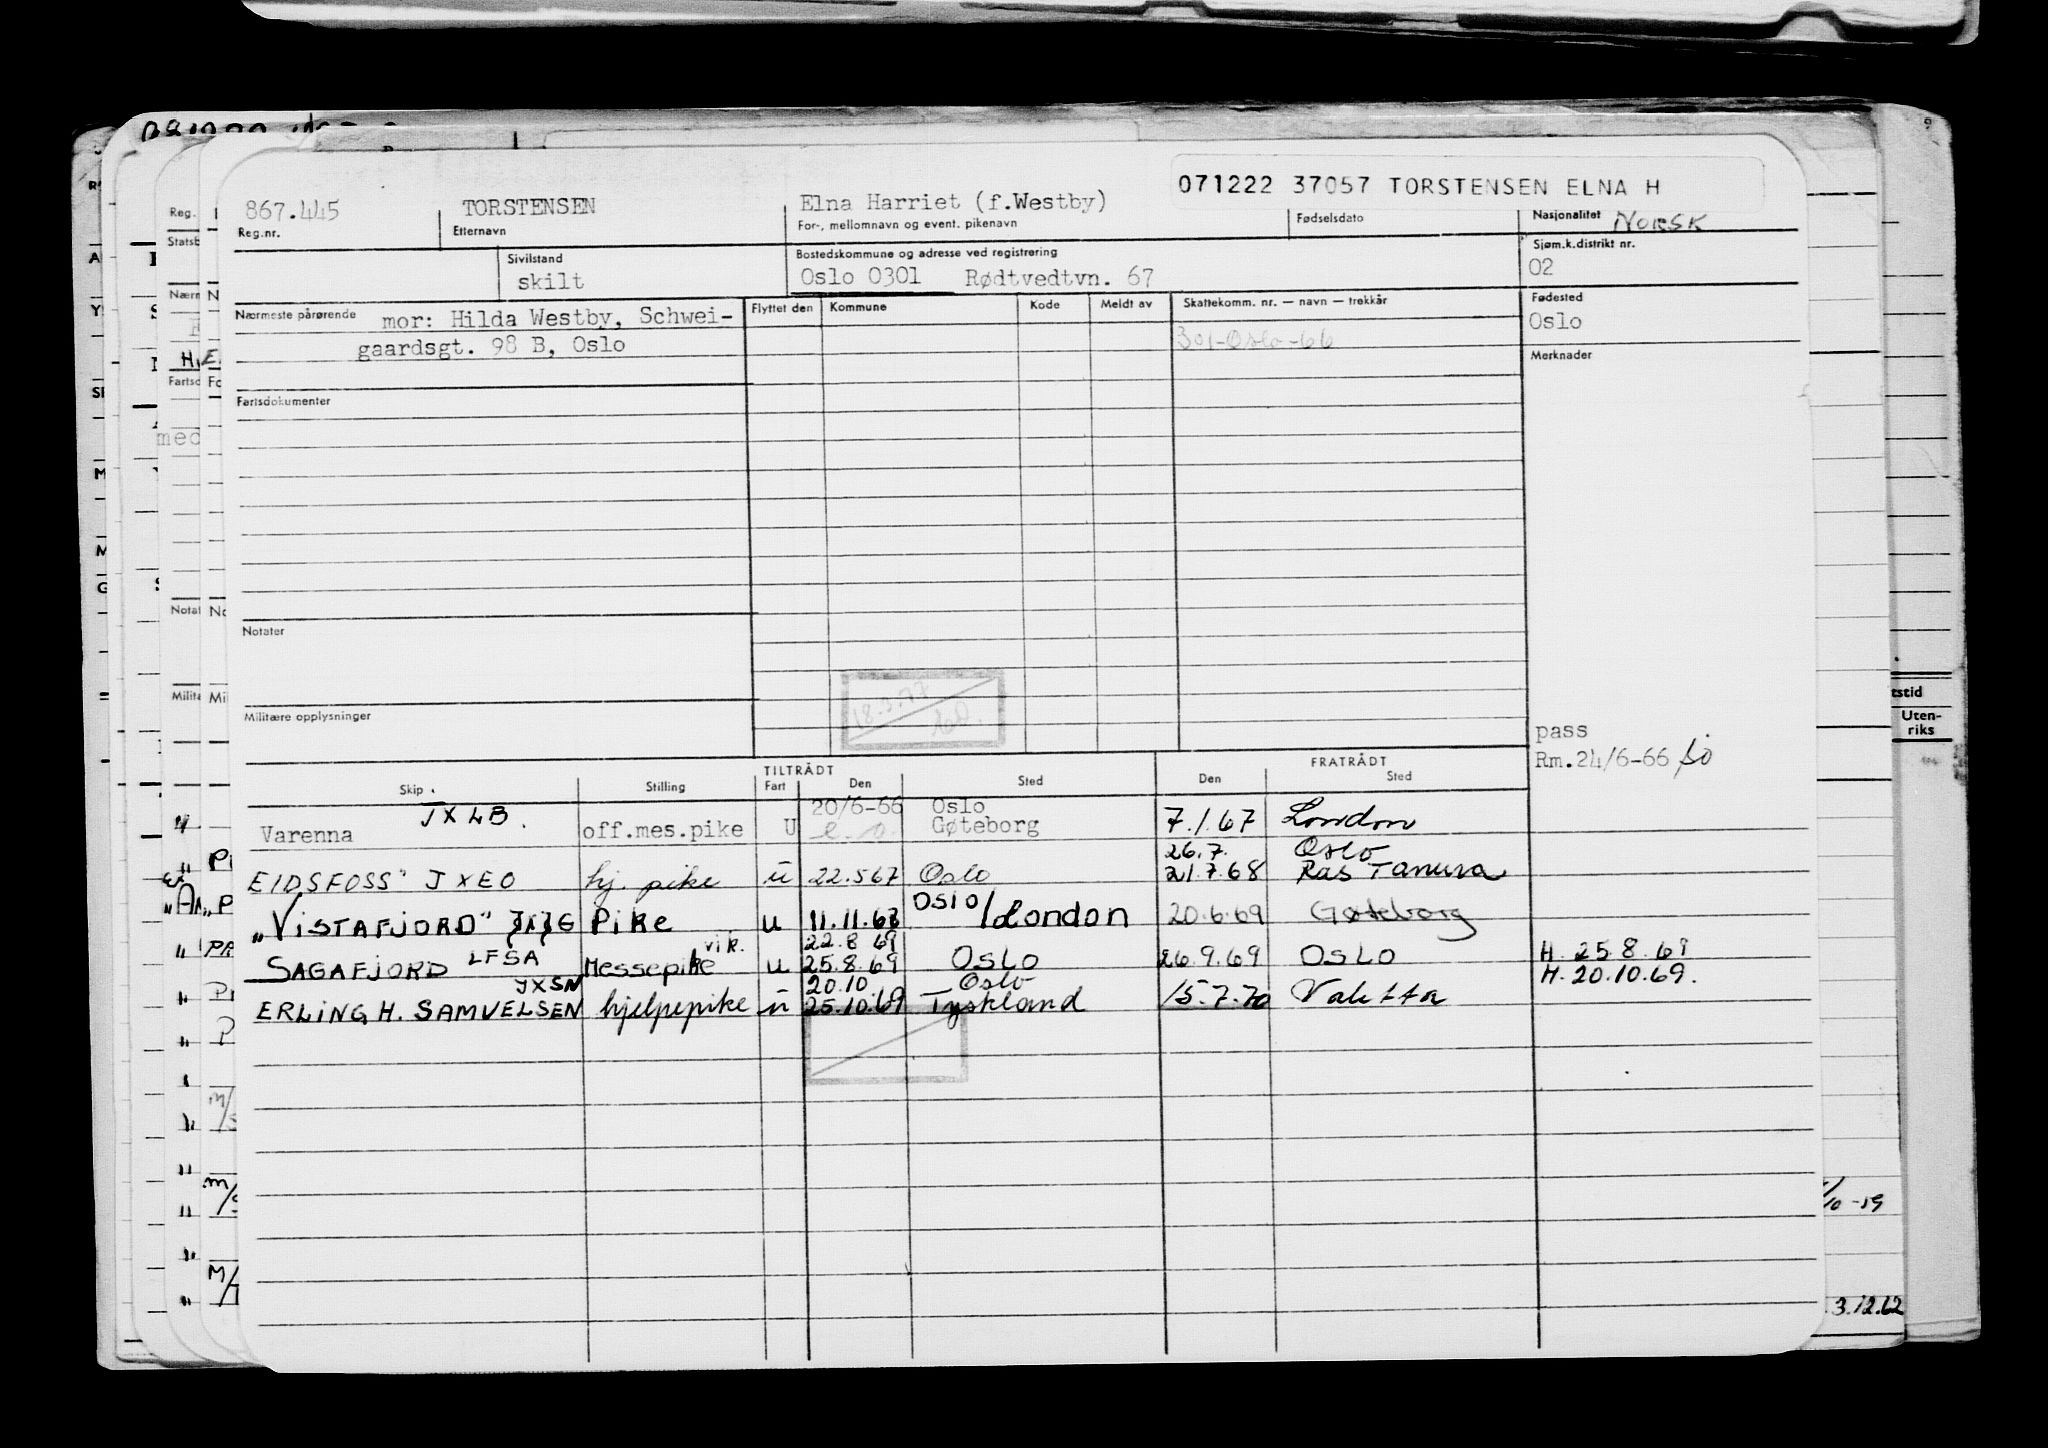 071222 37057 TORSTENSEN ELNA H
867.445 TORSTENSEN Elna Harriet (f.Westby)
Reg.nr. Etternavn For-, mellomnavn og event. pikenavn Fødselsdato Nasjonalitet NORSK
Sivilstand Bostedskommune og adresse ved registrering Sjøm.k.distrikt nr.
skilt Oslo 0301 Rødtvedtvn. 67 02
Nærmeste pårørende mor: Hilda Westby, Schwei-
gaardsgt. 98 B, Oslo
Flyttet den Kommune Kode Meldt av Skattekomm. nr. — navn — trekkår Fødested
301-Oslo-66 Oslo
Merknader
Fartsdokumenter
Notater
18.3.77
Militære opplysninger
pass
Rm.24/6-66
TILTRÅDT FRATRÅDT
Skip Stilling Fart Den Sted Den Sted
JXLB 20/6-66 Oslo
Varenna off.mes.pike U Gøteborg 7.1.67 London
26.7. Oslo
EIDSFOSS" JXEO hj. pike ü 22.567 Oslo 21.7.68 Ras Tanura
„VISTAFJORD" Pike u 11.11.68 OSLO/London 20.6.69 Gøteborg
vik. 22.8 69
SAGAFJORD LFSA Messepike u 25.8.69 OSLO 26.9.69 OSLO H. 25.8.69
JXSN 20.10 Oslo H. 20.10.69.
ERLING H. SAMUELSEN hjelpepike ü 25.10.69 Tyskland 15.7.70 Valetta
tstid
Uten-
riks
/10-59
3.12.62